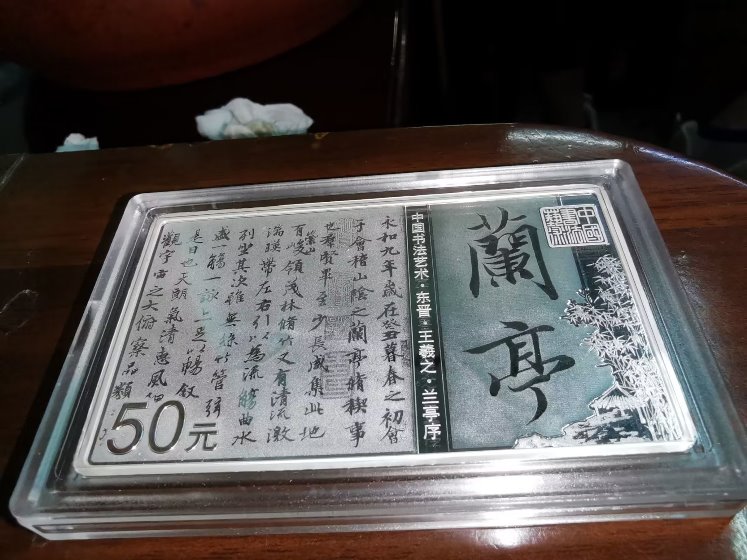 中國書法藝術
蘭亭
中国书法艺术·东晋·王羲之·兰亭序
永和九年歲在癸丑暮春之初會
于會稽山陰之蘭亭脩稧事
也羣賢畢至少長咸集此地
有崇山峻領茂林脩竹又有清流激
湍暎帶左右引以為流觴曲水
列坐其次雖無絲竹管弦
盛一觴一詠亦足以暢叙
是日也天朗氣清惠風
觀宇宙之大俯察品類
50元